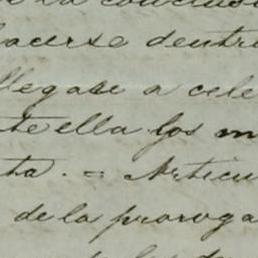 la conclusi
acerse dentr
llegase a cele
te ella los m
ta. = Articu
de la proroga